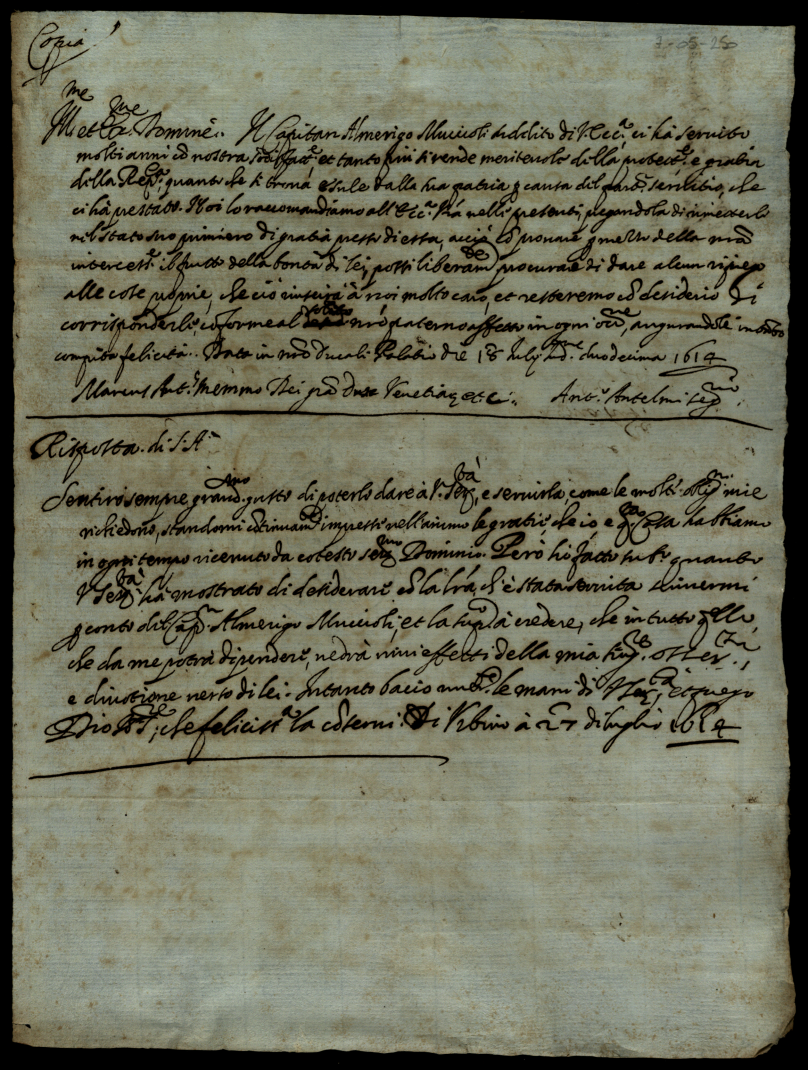 Copia
Ill.me et Ecc.me Domine. Il Capitan Almerigo Muccioli suddito di V. Ecc.a ci hà servito
molti anni cõ nostra sodisfat.e et tanto più si rende meritevole della protett.e e gratia
della Rep.ca quanto che si trova esule dalla sua patria p causa del servitio, che
ci hà prestato. Noi lo raccomandiamo all'Ecc.a V.ra nelle presenti, pregandola di rimetterlo
nel stato suo primiero di gratia presso di essa, acciò cõ provare p mezzo della nr̃a
intercess.e il frutto della bontà di lei, possi liberam.te procurare di dare alcun ripiego
alle cose proprie, che ciò riuscirà à noi molto caro, et resteremo cõ desiderio di
corrisponderle conforme al solito nr̃o paterno affetto in ogni occ.ne, augurandole intanto
compita felicità. Data in nr̃o Ducali Palatio die 18 July Ind.ne duodecima 1614
Marcus Ant.s Memmo Dei grã Dux Venetiar etc. Ant.o Antelmi Seg.rio
Risposta di S. A.
Sentirò sempre grand.mo gusto di poterlo dare à V. Ser.tà, e servirla, come le molte oblig.ni mie
richiedono, standomi cõtinuam.te impresse nell'animo le gratie, che io e q.sta Casa habbiamo
in ogni tempo ricevuto da cotesto Ser.mo Dominio. Però hò fatto subito quanto
V. Ser.tà hà mostrato di desiderare cõ la lr̃a, ch'è stata servita scrivermi
p conto del Cap.n Almerigo Muccioli, et la sup.co à credere, che in tutto q̃llo,
che da me potrà dipendere, vedrà vivi effetti della mia sing.re osser.za,
e divotione verso di lei. Intanto bacio le mani di V. Ser.tà, et prego
Dio che feliciss.a la cõservi. Di Urbino à 27 di luglio 1614